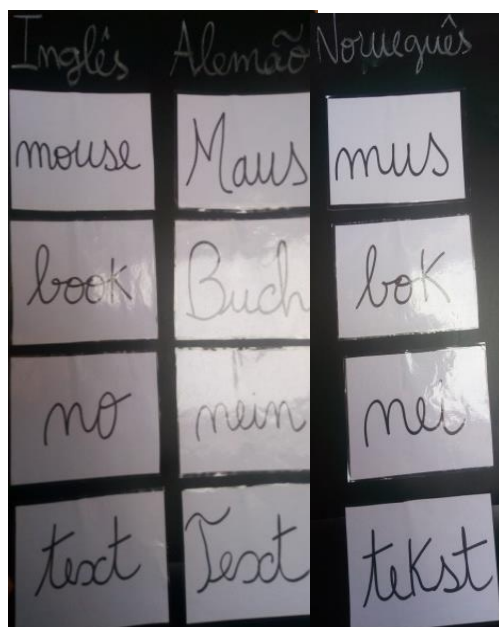 Inglês Alemão Norueguês
mouse Maus mus
book Buch bok
no nein nei
text Text tekst